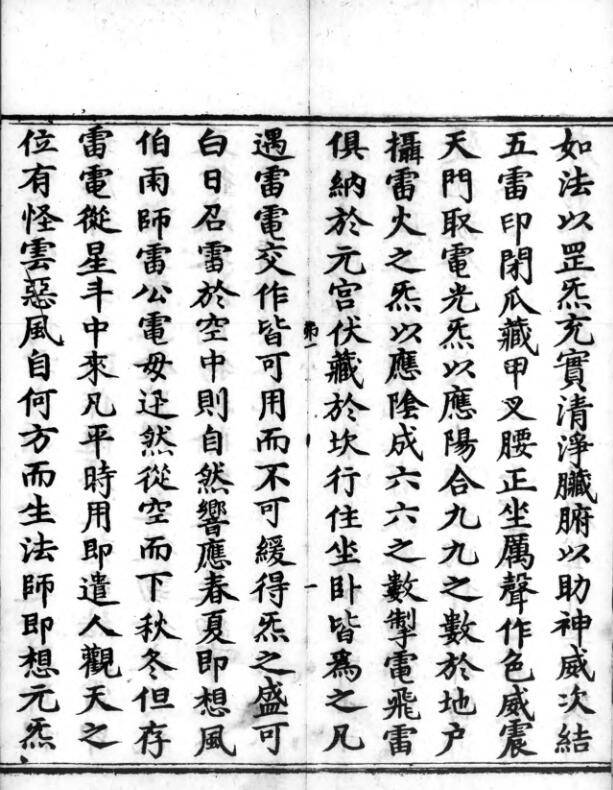 如法以罡炁充實清淨臟腑以助神威次結
五雷印閉爪藏甲叉腰正坐厲聲作色威震
天門取電光炁以應陽合九九之數於地户
攝雷火之炁以應陰成六六之數掣電飛雷
俱納於元宫伏藏於坎行住坐卧皆爲之凡
遇雷電交作皆可用而不可緩得炁之盛可
白日召雷於空中則自然響應春夏即想風
伯雨師雷公電毋迋然從空而下秋冬但存
雷電從星斗中來凡平時用即遣人觀天之
位有怪雲惡風自何方而生法師即想元炁